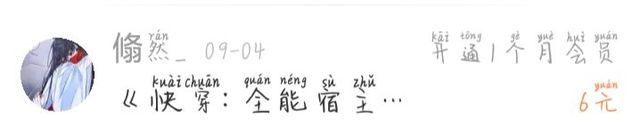 rán kāi tōng gè yuè huì yuán
翛然_ 09-04 开通1个月会员
kuài chuān quán néng sù zhǔ yuán
《快穿：全能宿主… 6元